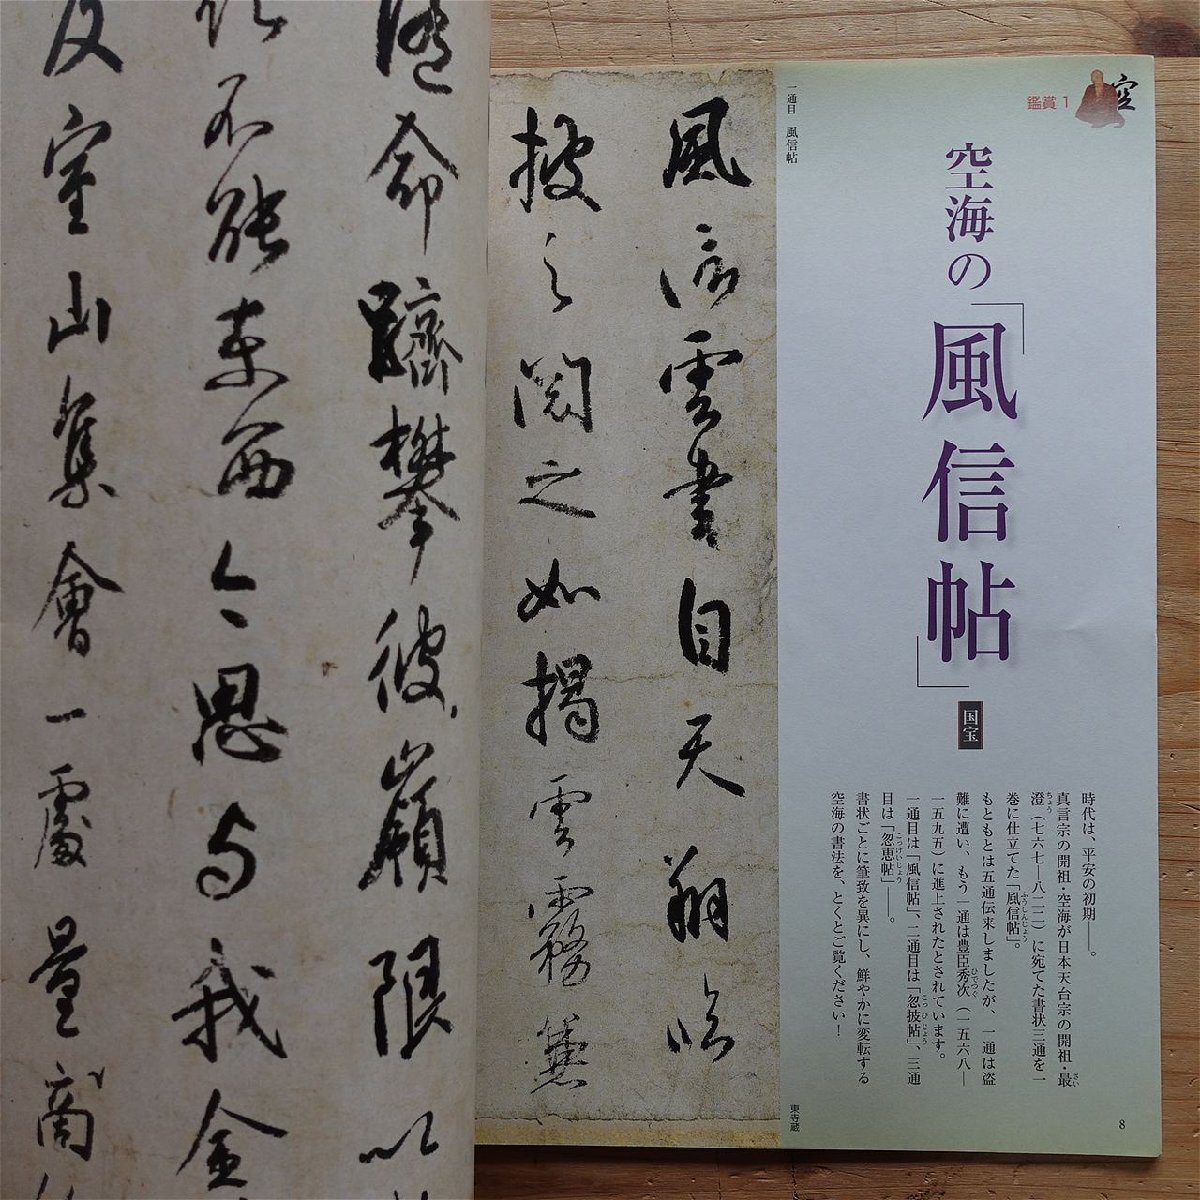 空
鑑賞1
空海の「風信帖」
国宝
時代は、平安の初期——。
真言宗の開祖・空海が日本天台宗の開祖・最
澄(七六七—八二二)に宛てた書状三通を一
巻に仕立てた「風信帖」。
もともとは五通伝来しましたが、一通は盗
難に遭い、もう一通は豊臣秀次(一五六八—
一五九五)に進上されたとされています。
一通目は「風信帖」、二通目は「忽披帖」、三通
目は「忽恵帖」——。
書状ごとに筆致を異にし、鮮やかに変転する
空海の書法を、とくとご覧ください!
さい
ちょう
ふうしんじょう
ひでつぐ
こつひじょう
こつけいじょう
8
一通目 風信帖
東寺蔵
風信雲書自天翔臨
披之閲之如揭雲霧兼
随命躋攀彼嶺限以
不能東西今思与我金
及室山集會一處量商